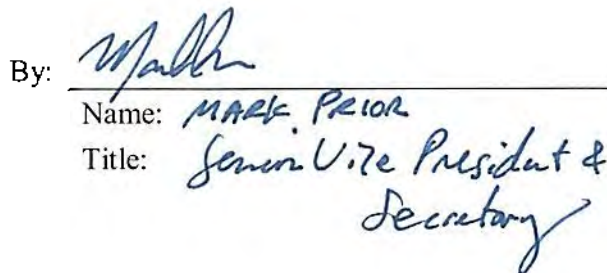 By:
Name: MARK PRIOR
Title: Senior Vice President &
Secretary